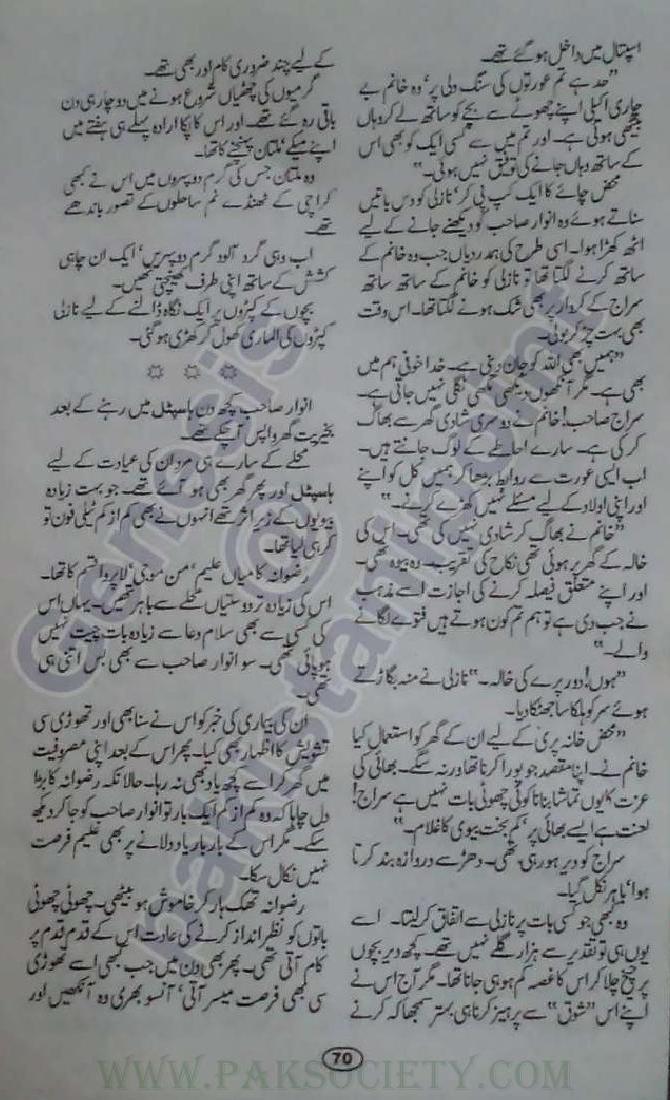 اسپتال میں داخل ہو گئے تھے۔
”حد ہے تم عورتوں کی سنگ دلی پر‘ وہ خانم بے
چاری اکیلی اپنے چھوٹے سے بچے کو ساتھ لے کر وہاں
بیٹھی ہوئی ہے۔ اور تم میں سے کسی ایک کو بھی اس
کے ساتھ وہاں جانے کی توفیق نہیں ہوئی۔“
محض چائے کا ایک کپ پی کر‘ نازلی کو دس باتیں
سناتے ہوئے وہ انوار صاحب کو دیکھنے جانے کے لیے
اٹھ کھڑا ہوا۔ اسی طرح کی ہمدردیاں جب وہ خانم کے
ساتھ کرنے لگتا تھا تو نازلی کو خانم کے ساتھ ساتھ
سراج کے کردار پر بھی شک ہونے لگتا تھا۔ اس وقت
بھی بہت چڑ کر بولی۔
”ہمیں بھی اللہ کو جان دینی ہے۔ خدا خوفی ہم میں
بھی ہے۔ مگر آنکھوں دیکھی مکھی نگلی نہیں جاتی ہے۔
سراج صاحب! خانم نے دوسری شادی گھر سے بھاگ
کر کی ہے۔ سارے احاطے کے لوگ جانتے ہیں۔
اب ایسی عورت سے روابط بڑھا کر ہمیں کل کو اپنے
اور اپنی اولاد کے لیے مسئلے نہیں کھڑے کرنے۔“
”خانم نے بھاگ کر شادی نہیں کی تھی۔ اس کی
خالہ کے گھر پر ہوئی تھی نکاح کی تقریب۔ وہ بیوہ تھی۔
اور اپنے متعلق فیصلہ کرنے کی اجازت اسے مذہب
نے جب دی ہے تو ہم تم کون ہوتے ہیں فتوے لگانے
والے۔“
”ہوں! دور پرے کی خالہ۔“ نازلی نے منہ بگاڑتے
ہوئے سر کو ہلکا سا جھٹکا دیا۔
”محض خانہ پری کے لیے ان کے گھر کو استعمال کیا
خانم نے۔ اپنا مقصد جو پورا کرنا تھا ورنہ سگے۔ بھائی کی
عزت کا یوں تماشا بنانا کوئی چھوٹی بات نہیں ہے سراج!
لعنت ہے ایسے بھائی پر‘ کم بخت بیوی کا غلام۔“
سراج کو دیر ہو رہی تھی۔ دھڑ سے دروازہ بند کرتا
ہوا‘ باہر نکل گیا۔
وہ کبھی جو کسی بات پر نازلی سے اتفاق کر لیتا۔ اسے
یوں ہی تو تقدیر سے ہزار گلے نہیں تھے۔ کچھ دیر بچوں
پر چیخ چلا کر اس کا غصہ کم ہو ہی جاتا تھا۔ مگر آج اس نے
اپنے اس ”شوق“ سے پرہیز کرنا ہی بہتر سمجھا کہ کرنے
کے لیے چند ضروری کام اور بھی تھے۔
گرمیوں کی چھٹیاں شروع ہونے میں دو چار ہی دن
باقی رہ گئے تھے۔ اور اس کا پکا ارادہ پہلے ہی ہفتے میں
اپنے میکے‘ ملتان پہنچنے کا تھا۔
وہ ملتان جس کی گرم دوپہروں میں اس نے کبھی
کراچی کے ٹھنڈے نم ساحلوں کے تصور باندھے
تھے۔
اب وہی گرد آلود گرم دوپہریں‘ ایک ان چاہی
کشش کے ساتھ اپنی طرف کھینچتی تھیں۔
بچوں کے کپڑوں پر ایک نگاہ ڈالنے کے لیے نازلی
کپڑوں کی الماری کھول کر کھڑی ہو گئی۔
انوار صاحب کچھ دن ہاسپٹل میں رہنے کے بعد
بخیریت گھر واپس آ چکے تھے۔
محلے کے سارے ہی مرد ان کی عیادت کے لیے
ہاسپٹل اور پھر گھر بھی ہو آئے تھے۔ جو بہت زیادہ
بیویوں کے زیر اثر تھے انہوں نے بھی کم از کم ٹیلی فون تو
کر ہی لیا تھا۔
رضوانہ کا میاں علیم‘ من موجی‘ لاپروا قسم کا تھا۔
اس کی زیادہ تر دوستیاں محلے سے باہر تھیں۔ یہاں اس
کی کسی سے بھی سلام دعا سے زیادہ بات چیت نہیں
ہو پاتی تھی۔ سو انوار صاحب سے بھی بس اتنی ہی
تھی۔
ان کی بیماری کی خبر کو اس نے سنا بھی اور تھوڑی سی
تشویش کا اظہار بھی کیا۔ پھر اس کے بعد اپنی مصروفیت
میں گھر کر اسے کچھ یاد بھی نہ رہا۔ حالانکہ رضوانہ کا بڑا
دل چاہا کہ وہ کم از کم ایک بار تو انوار صاحب کو جا کر دیکھ
سکے۔ مگر اس کے بار بار یاد دلانے پر بھی علیم فرصت
نہیں نکال سکا۔
رضوانہ تھک ہار کر خاموش ہو بیٹھی۔ چھوٹی چھوٹی
باتوں کو نظر انداز کرنے کی عادت اس کے قدم قدم پر
کام آتی تھی۔ پھر بھی دن میں جب کبھی اسے تھوڑی
سی بھی فرصت میسر آتی‘ آنسو بھری وہ آنکھیں اور
70
WWW.PAKSOCIETY.COM
Genesis
©
pakistanipoint